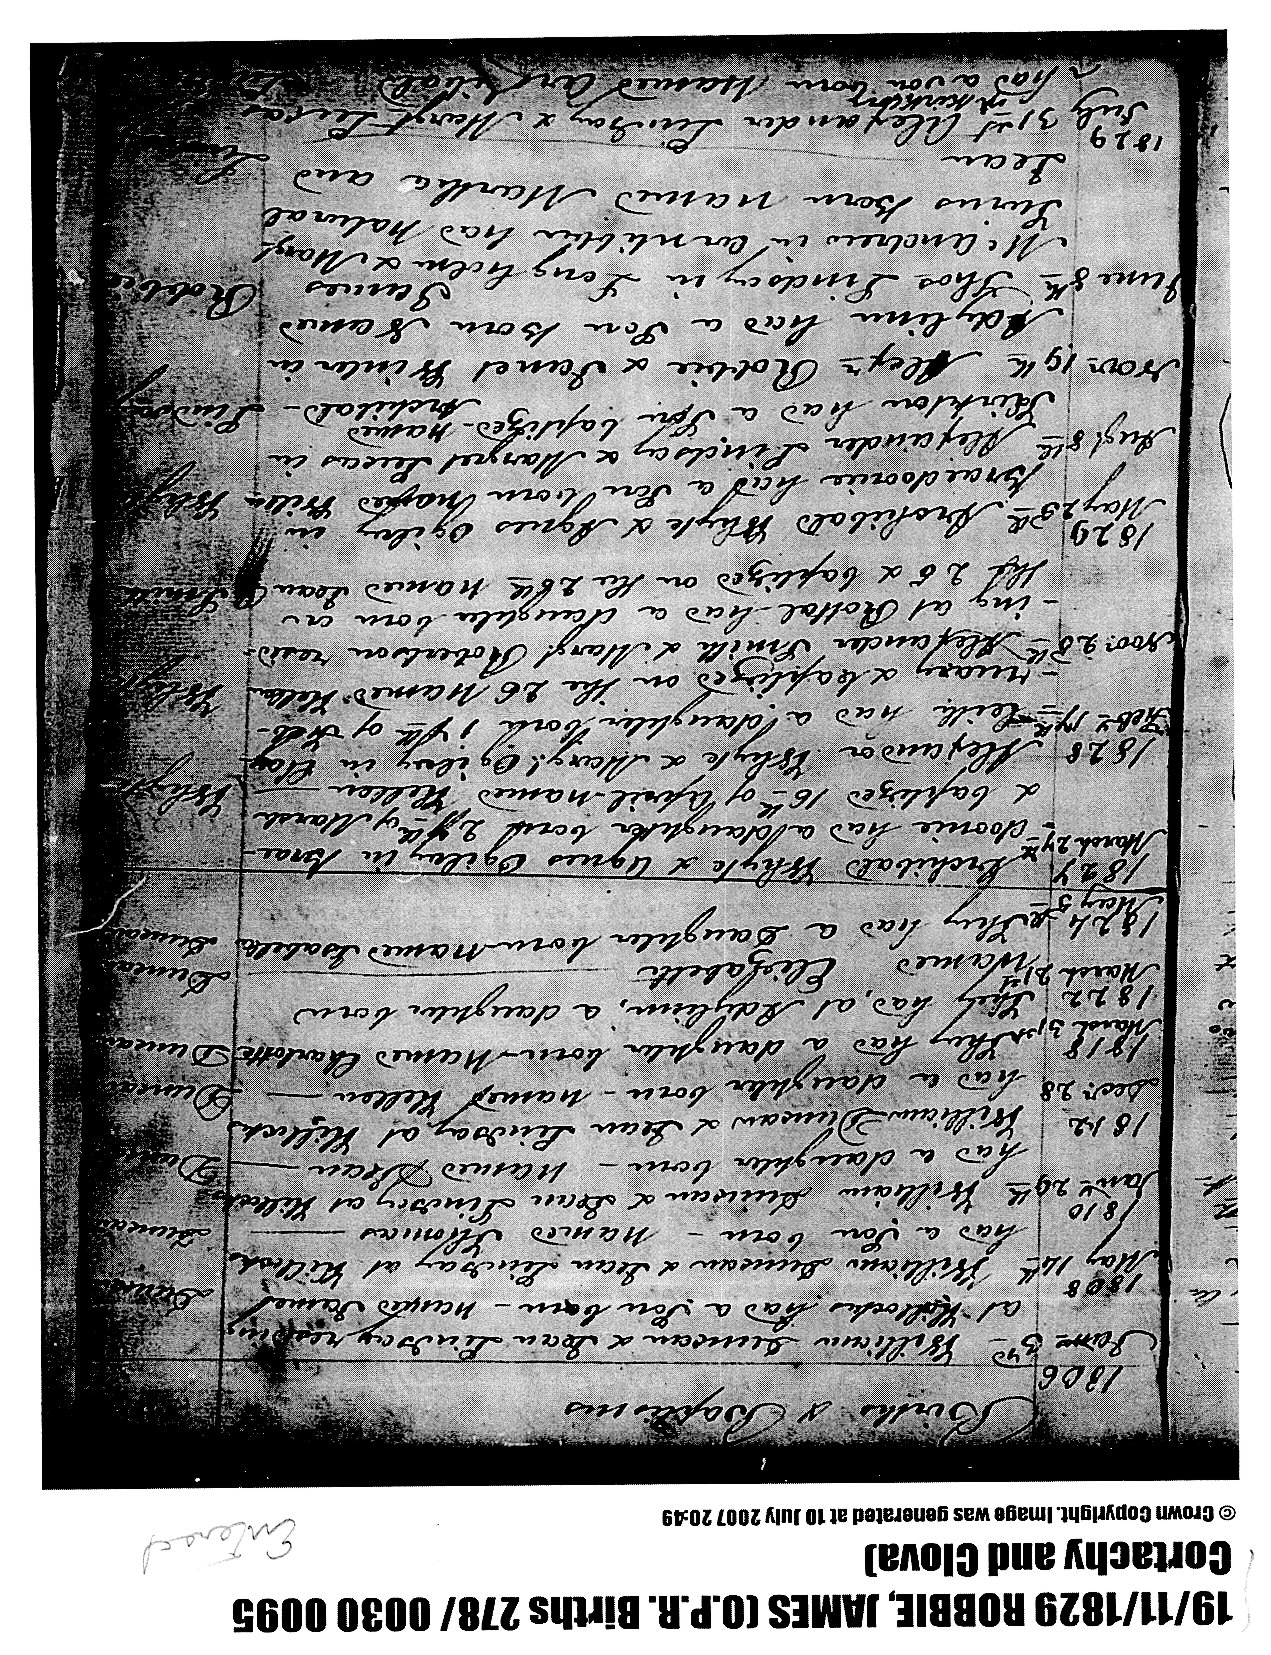 19/11/1829 ROBBIE, JAMES (O.P.R. Births 278/ 0030 0095
Cortachy and Clova)
© Crown Copyright. Image was generated at 10 July 2007 20:49
Entered
Births & Baptisms
1806
3rd William Duncan & Jean Lindsay residing
at Killocks had a Son born - named James Duncan
1808
May 14th William Duncan & Jean Lindsay at Killocks
had a Son born - named Thomas Duncan
1810
Jany 29th William Duncan & Jean Lindsay at Killocks
had a daughter born - named Jean
1812
Decr. 28 William Duncan & Jean Lindsay at Killocks
had a daughter born - named Hellen Duncan
1818
March 31st They had a daughter born - named Charlotte Duncan
1822
March 21st They had, at Adylinn, a daughter born
named Elizabeth Duncan
1824
May 5th They had a Daughter born named Isabella Duncan
1827
March 27th Archibald Whyte & Agnes Ogilvy in Brae-
-doonie had a daughter born 27th of March
& baptized 16th of April named Hellen Whyte
1828
Feby 17th Alexander Whyte & Margt Ogilvy in
had a daughter born 17th of Feb-
-ruary & baptized on the 26 named Hellen Whyte
Novr. 25th Alexander Smith & Margt Robertson resid-
-ing at Rottal had a daughter born on
the 25 & baptized on the 26th named Jean Smith
1829
May 23th Archibald Whyte & Agnes Ogilvy in
Braedoonie had a Son born named Whyte
Augt 8th Alexander Lindsay & Margret Lucas in
Kirkton had a Son baptized - named Archibald - Lindsay
Novr 19th Alexr Robbie & Janet Winter in
Adylinn had a Son born named
James Robbie
June 8th Thos Lindsay in Longholm & Margt
McAndrew in had Natural
Twins born named Martha and
Jean
1829
July 31st Alexander Lindsay & Margt Lucas
in Kirkton
had a Son born named Archibald